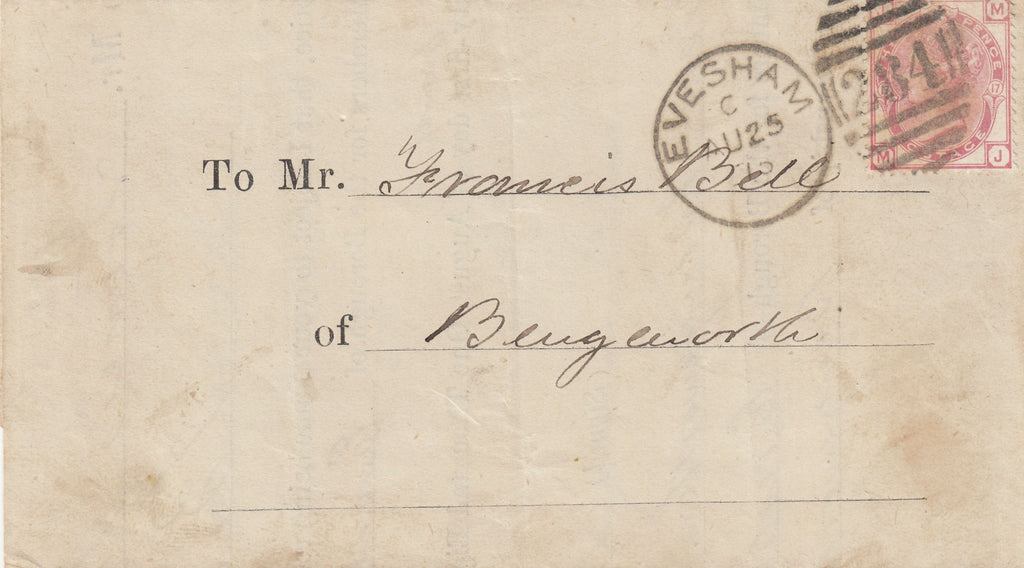 EVESHAM
C
AU 25
PENCE
M
17
284
M J
To Mr. Francis Bell
of Bengeworth